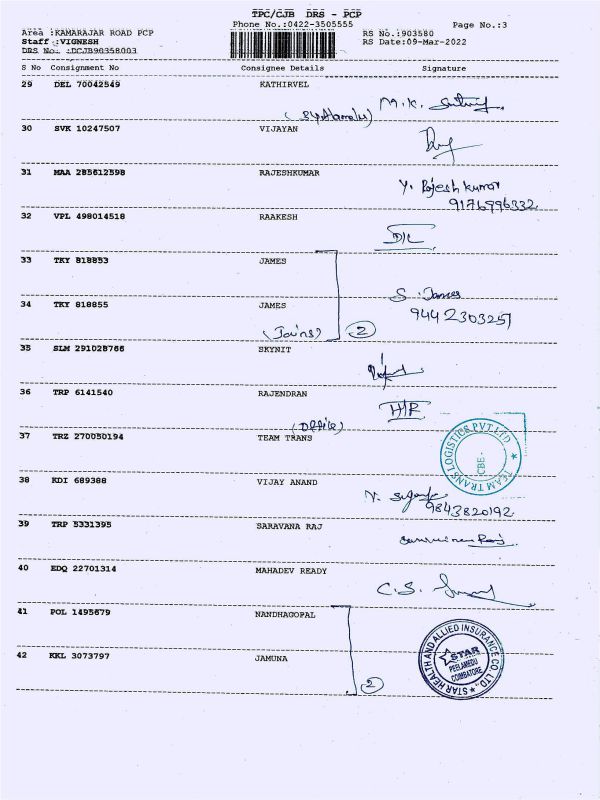 TPC/CJB DRS - PCP
Phone No.:0422-3505555
Page No.:3
Area :KAMARAJAR ROAD PCP
Staff :VIGNESH
DRS No. :DCJB90358003
RS No.:903580
RS Date:09-Mar-2022
S No Consignment No Consignee Details Signature
29 DEL 70042549 KATHIRVEL
M.K.
30 SVK 10247507 VIJAYAN
31 MAA 285612598 RAJESHKUMAR
Y. Rajesh kumar
9176996332
32 VPL 498014518 RAAKESH
D/L
33 TKY 818853 JAMES
S. James
34 TKY 818855 JAMES
9442303257
(Jains) 2
35 SLM 291028766 SKYNIT
36 TRP 6141540 RAJENDRAN
H/R
(Office)
37 TRZ 270050194 TEAM TRANS
TEAM TRANS LOGISTICS PVT LTD
CBE
38 KDI 689388 VIJAY ANAND
9843820192
39 TRP 5331395 SARAVANA RAJ
40 EDQ 22701314 MAHADEV READY
C.S.
41 POL 1495679 NANDHAGOPAL
42 KKL 3073797 JAMUNA
2
STAR HEALTH AND ALLIED INSURANCE CO. LTD
STAR
PEELAMEDU
COIMBATORE